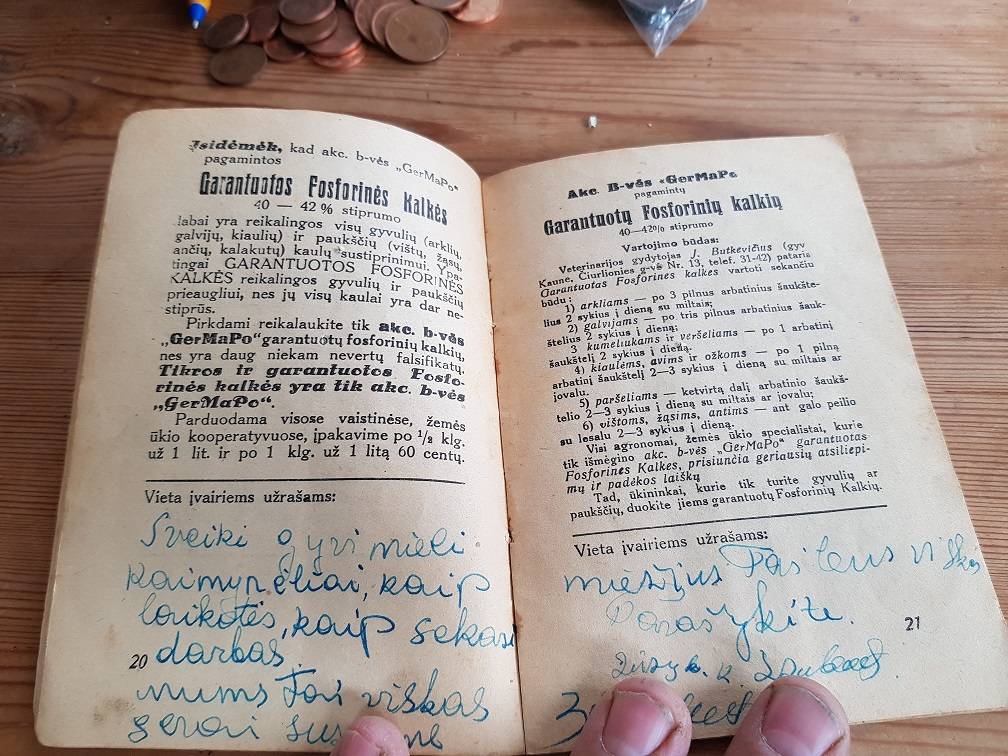 Įsidėmėk, kad akc. b-vės „GerMaPo“
pagamintos
Garantuotos Fosforinės Kalkės
40 — 42 % stiprumo
labai yra reikalingos visų gyvulių (arklių,
galvijų, kiaulių) ir paukščių (vištų, žąsų,
ančių, kalakutų) kaulų sustiprinimui. Ypa-
tingai GARANTUOTOS FOSFORINĖS
KALKĖS reikalingos gyvulių ir paukščių
prieaugliui, nes jų visų kaulai yra dar ne-
stiprūs.
Pirkdami reikalaukite tik akc. b-vės
„GerMaPo“ garantuotų fosforinių kalkių,
nes yra daug niekam nevertų falsifikatų.
Tikros ir garantuotos Fosfo-
rinės kalkės yra tik akc. b-vės
„GerMaPo“.
Parduodama visose vaistinėse, žemės
ūkio kooperatyvuose, įpakavime po ½ klg.
už 1 lit. ir po 1 klg. už 1 litą 60 centų.
Vieta įvairiems užrašams:
Sveiki gyvi mieli
kaimynėliai, kaip
laikotės, kaip sekasi
darbas.
20
mums tai viskas
gerai
Akc. B-vės «GerMaPo
pagamintų
Garantuotų Fosforinių kalkių
40—42% stiprumo
Vartojimo būdas:
Veterinarijos gydytojas J. Butkevičius (gyv
Kaune, Čiurlionies g-vė Nr. 13, telef. 31-42) pataria
Garantuotas Fosforines kalkes vartoti sekančiu
būdu:
1) arkliams — po 3 pilnus arbatinius šaukšte-
lius 2 sykius į dieną su miltais;
2) galvijams — po tris pilnus arbatinius šauk-
štelius 2 sykius į dieną;
3 kumeliukams ir veršeliams — po 1 arbatinį
šaukštelį 2 sykius į dieną.
4) kiaulėms, avims ir ožkoms — po 1 pilną
arbatinį šaukštelį 2—3 sykius į dieną su miltais ar
jovalu.
5) paršeliams — ketvirtą dalį arbatinio šaukš-
telio 2—3 sykius į dieną su miltais ar jovalu;
6) vištoms, žąsims, antims — ant galo peilio
su lesalu 2—3 sykius į dieną.
Visi agronomai, žemės ūkio specialistai, kurie
tik išmėgino akc. b-vės „GerMaPo“ garantuotas
Fosforines Kalkes, prisiunčia geriausių atsiliepi-
mų ir padėkos laiškų
Tad, ūkininkai, kurie tik turite gyvulių ar
paukščių, duokite jiems garantuotų Fosforinių Kalkių.
Vieta įvairiems užrašams:
Parašykite.
21